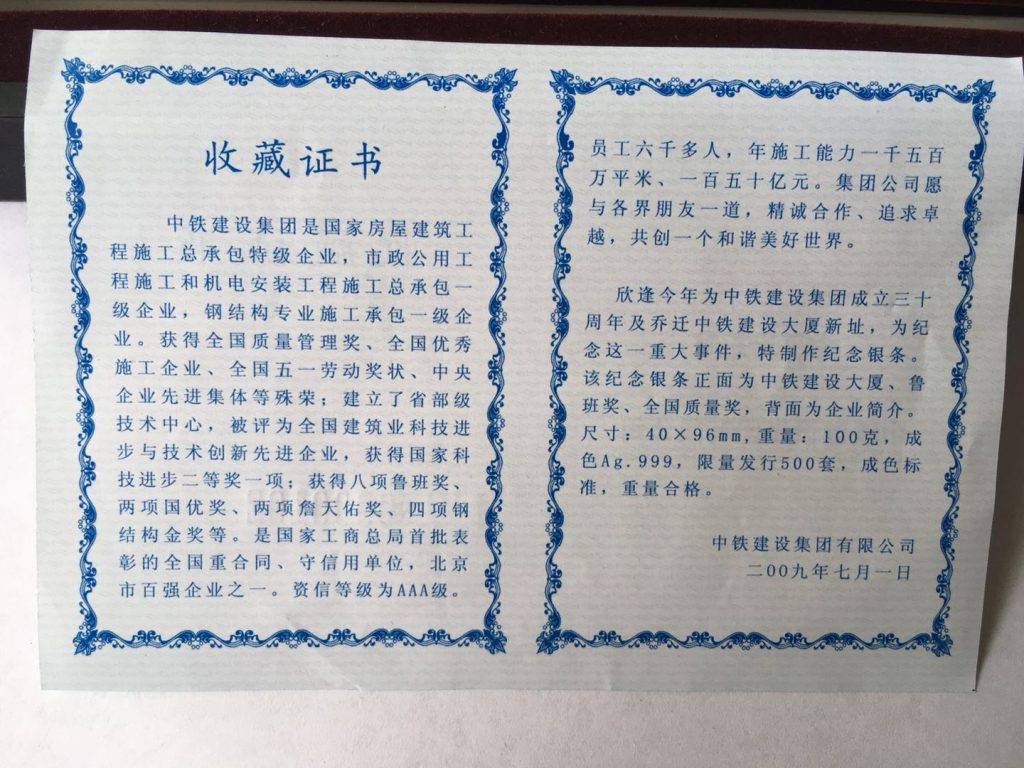 收藏证书
中铁建设集团是国家房屋建筑工
程施工总承包特级企业，市政公用工
程施工和机电安装工程施工总承包一
级企业，钢结构专业施工承包一级企
业。获得全国质量管理奖、全国优秀
施工企业、全国五一劳动奖状、中央
企业先进集体等殊荣；建立了省部级
技术中心，被评为全国建筑业科技进
步与技术创新先进企业，获得国家科
技进步二等奖一项；获得八项鲁班奖、
两项国优奖、两项詹天佑奖、四项钢
结构金奖等。是国家工商总局首批表
彰的全国重合同、守信用单位，北京
市百强企业之一。资信等级为AAA级。
员工六千多人，年施工能力一千五百
万平米、一百五十亿元。集团公司愿
与各界朋友一道，精诚合作、追求卓
越，共创一个和谐美好世界。
欣逢今年为中铁建设集团成立三十
周年及乔迁中铁建设大厦新址，为纪
念这一重大事件，特制作纪念银条。
该纪念银条正面为中铁建设大厦、鲁
班奖、全国质量奖，背面为企业简介。
尺寸：40×96mm,重量：100克，成
色Ag.999，限量发行500套，成色标
准，重量合格。
中铁建设集团有限公司
二00九年七月一日